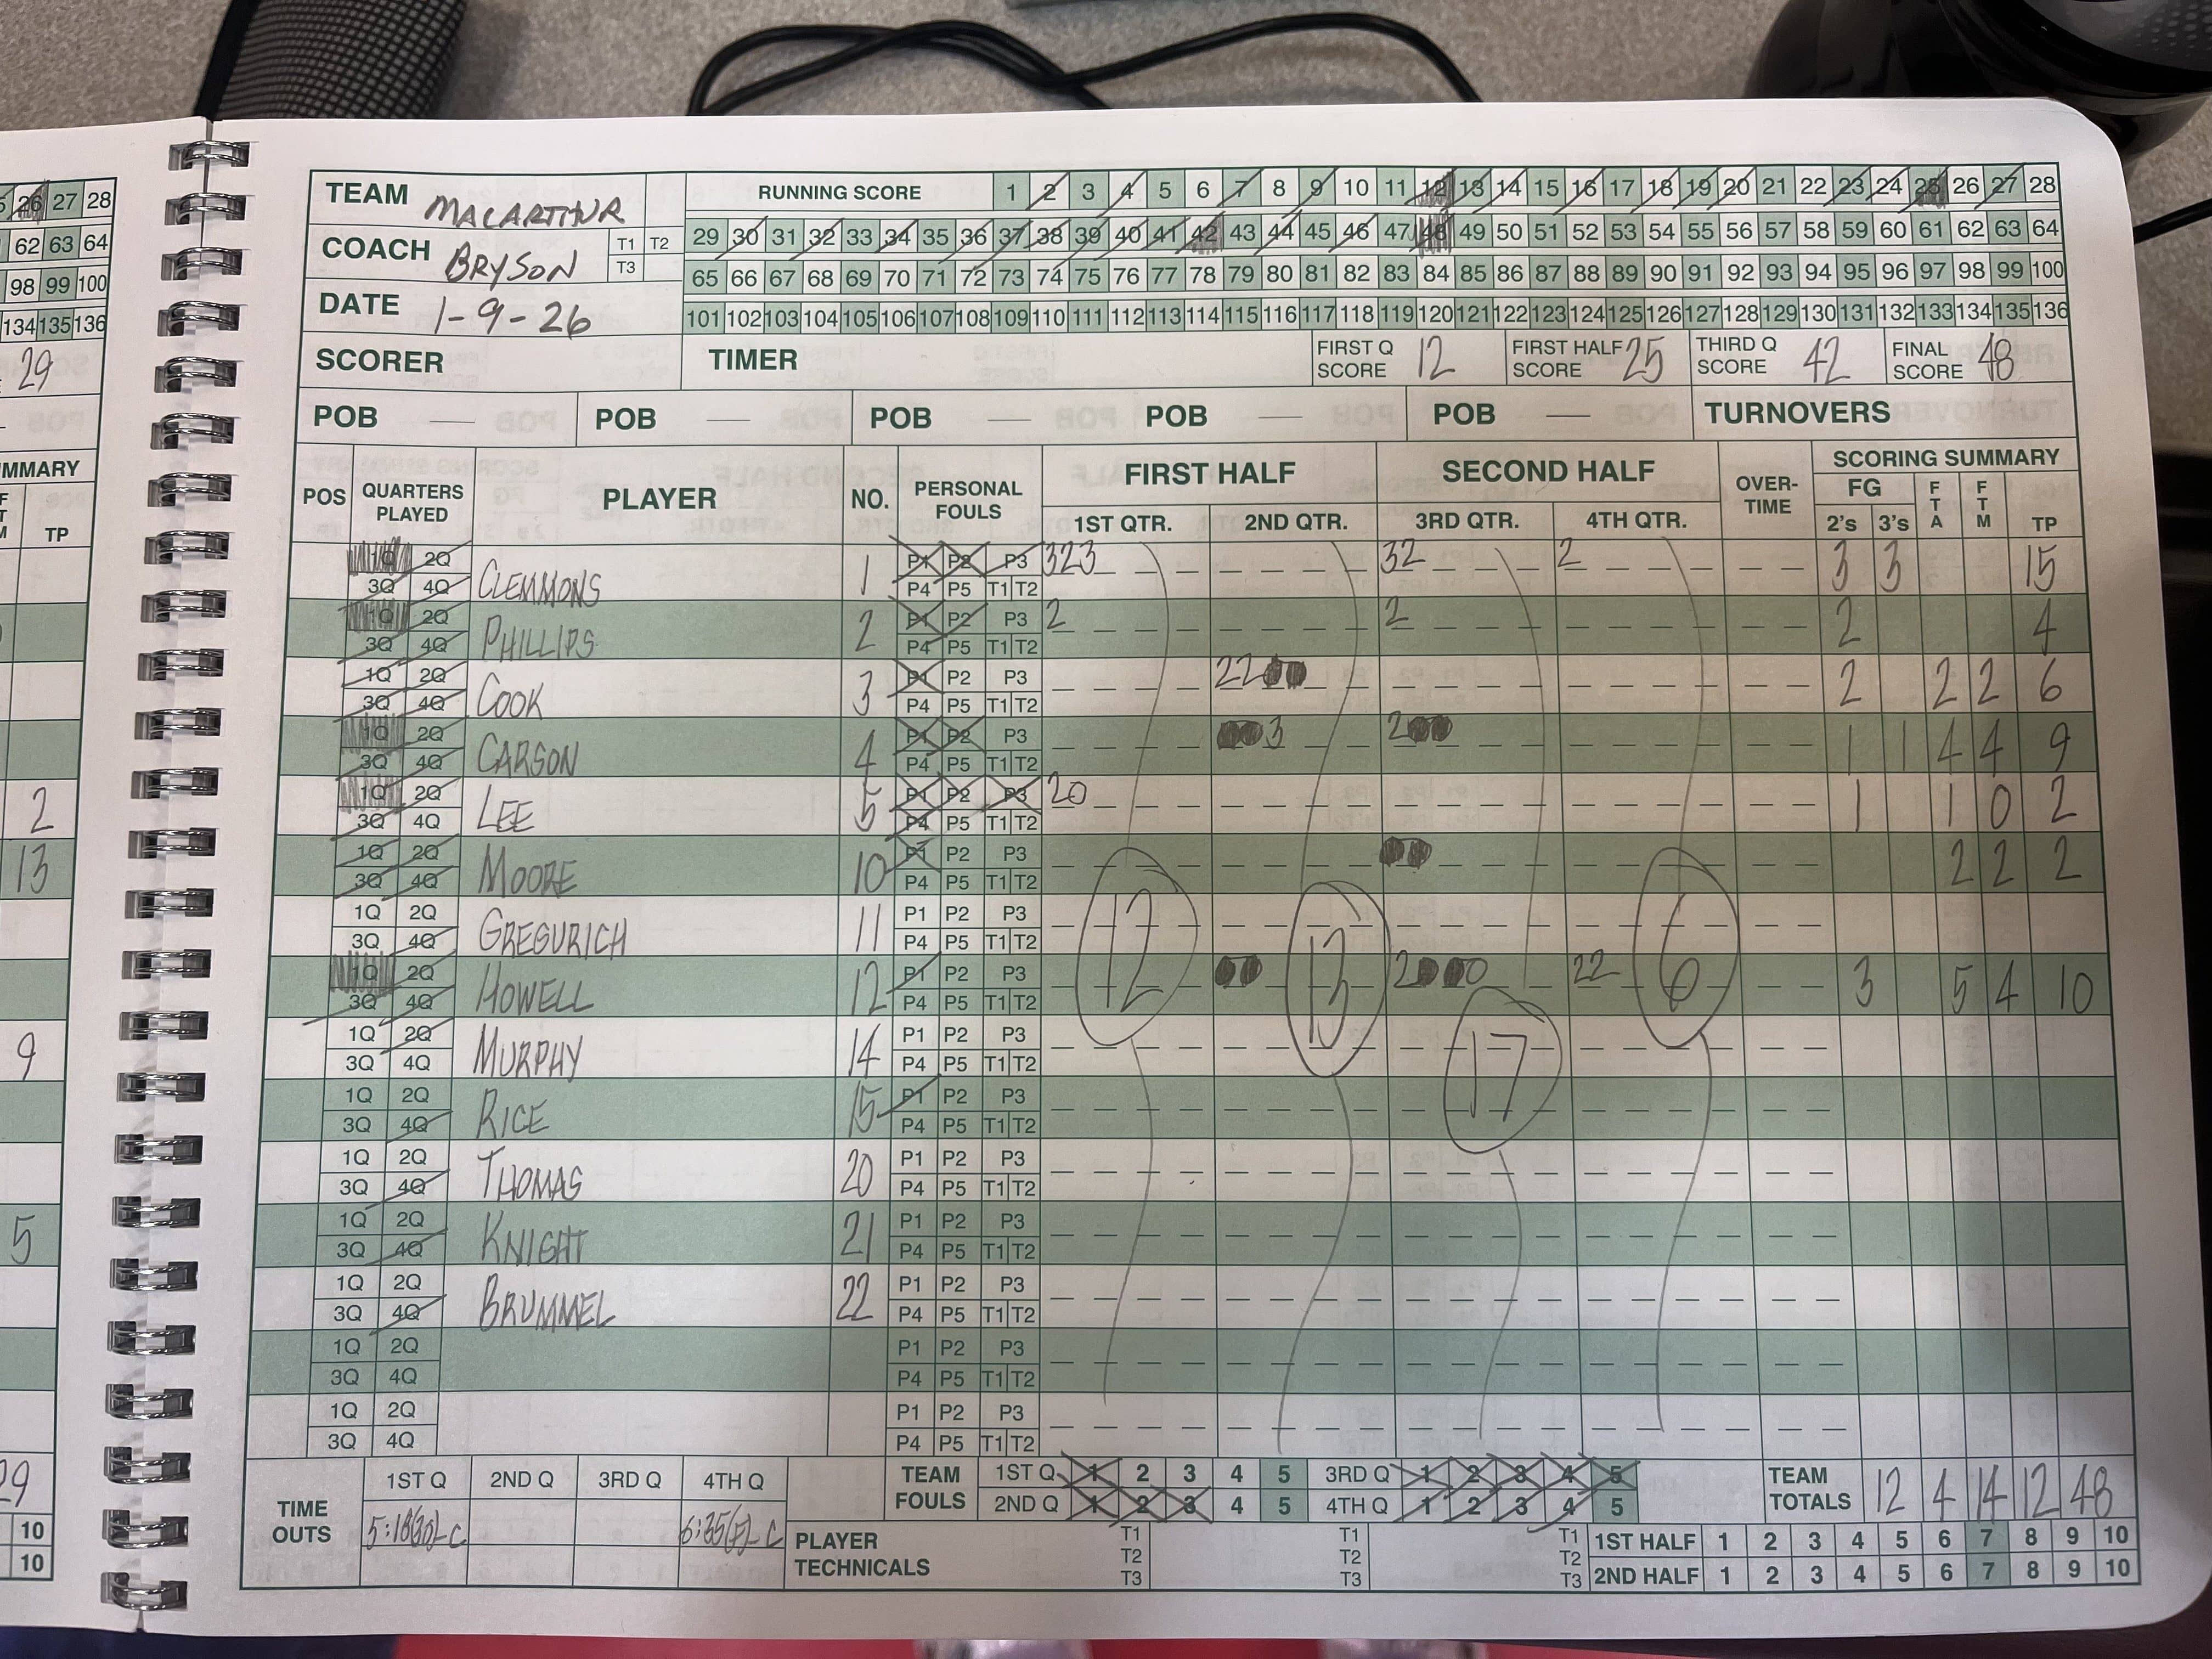 26 27 28
62 63 64
98 99 100
134 135 136
29
MMARY
TP
2
13
9
5
29
10
10
TEAM MACARTHUR
COACH BRYSON T1 T2 T3
DATE 1-9-26
RUNNING SCORE 1 2 3 4 5 6 7 8 9 10 11 12 13 14 15 16 17 18 19 20 21 22 23 24 25 26 27 28
29 30 31 32 33 34 35 36 37 38 39 40 41 42 43 44 45 46 47 48 49 50 51 52 53 54 55 56 57 58 59 60 61 62 63 64
65 66 67 68 69 70 71 72 73 74 75 76 77 78 79 80 81 82 83 84 85 86 87 88 89 90 91 92 93 94 95 96 97 98 99 100
101 102 103 104 105 106 107 108 109 110 111 112 113 114 115 116 117 118 119 120 121 122 123 124 125 126 127 128 129 130 131 132 133 134 135 136
SCORER TIMER FIRST Q SCORE 12 FIRST HALF SCORE 25 THIRD Q SCORE 42 FINAL SCORE 48
POB — POB — POB — POB — POB — TURNOVERS
POS QUARTERS PLAYED PLAYER NO. PERSONAL FOULS FIRST HALF SECOND HALF OVER-TIME SCORING SUMMARY
1ST QTR. 2ND QTR. 3RD QTR. 4TH QTR. FG 2's 3's FTA FTM TP
1Q 2Q P1 P2 P3 323 32 2 3 3 15
3Q 4Q CLEMMONS 1 P4 P5 T1 T2
1Q 2Q P1 P2 P3 2 2 2 4
3Q 4Q PHILLIPS 2 P4 P5 T1 T2
1Q 2Q P1 P2 P3 22 2 2 2 6
3Q 4Q COOK 3 P4 P5 T1 T2
1Q 2Q P1 P2 P3 3 2 1 1 4 4 9
3Q 4Q CARSON 4 P4 P5 T1 T2
1Q 2Q P1 P2 P3 20 1 1 0 2
3Q 4Q LEE 5 P4 P5 T1 T2
1Q 2Q P1 P2 P3 2 2 2
3Q 4Q MOORE 10 P4 P5 T1 T2
1Q 2Q P1 P2 P3
3Q 4Q GREGURICH 11 P4 P5 T1 T2 12 13 6
1Q 2Q P1 P2 P3 2 0 22 3 5 4 10
3Q 4Q HOWELL 12 P4 P5 T1 T2
1Q 2Q P1 P2 P3
3Q 4Q MURPHY 14 P4 P5 T1 T2 17
1Q 2Q P1 P2 P3
3Q 4Q RICE 15 P4 P5 T1 T2
1Q 2Q P1 P2 P3
3Q 4Q THOMAS 20 P4 P5 T1 T2
1Q 2Q P1 P2 P3
3Q 4Q KNIGHT 21 P4 P5 T1 T2
1Q 2Q P1 P2 P3
3Q 4Q BRUMMEL 22 P4 P5 T1 T2
1Q 2Q P1 P2 P3
3Q 4Q P4 P5 T1 T2
1Q 2Q P1 P2 P3
3Q 4Q P4 P5 T1 T2
TIME OUTS 1ST Q 2ND Q 3RD Q 4TH Q
5:18(30)-C 6:35(F)-C
TEAM FOULS 1ST Q 1 2 3 4 5 3RD Q 1 2 3 4 5
2ND Q 1 2 3 4 5 4TH Q 1 2 3 4 5
TEAM TOTALS 12 4 14 12 48
PLAYER TECHNICALS T1 T2 T3 T1 T2 T3 T1 T2 T3
1ST HALF 1 2 3 4 5 6 7 8 9 10
2ND HALF 1 2 3 4 5 6 7 8 9 10